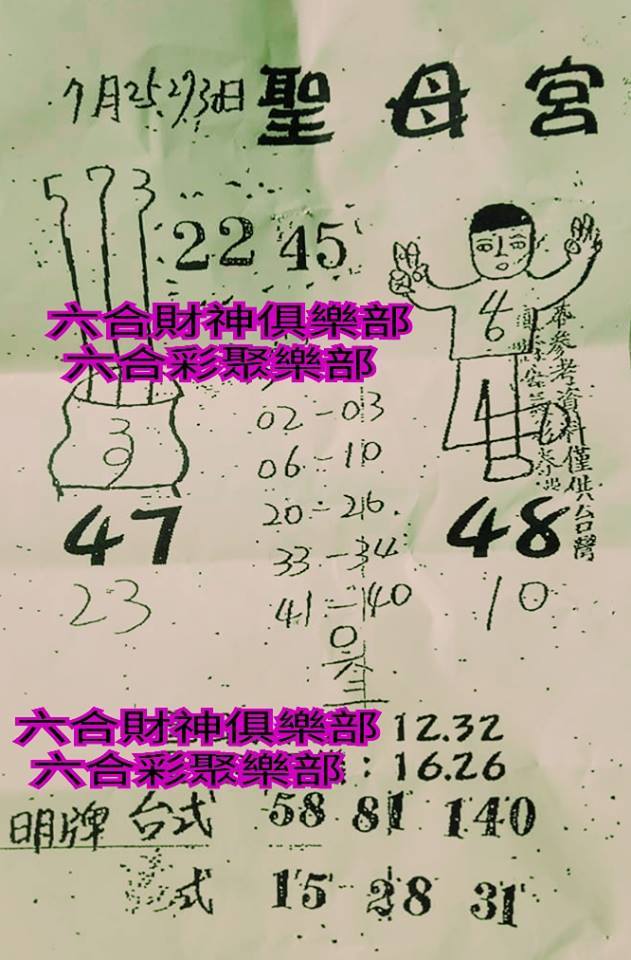 7月25.27.30日 聖母宮
5 7 3
22 45
六合財神俱樂部
六合彩聚樂部
46
39
1
本參考資料僅供台灣
02-03
06-10
20-26.
33-34
41-40
47
48
23
10
六合財神俱樂部 12.32
六合彩聚樂部:16.26
明牌 台式 58 81 140
式 15 28 31